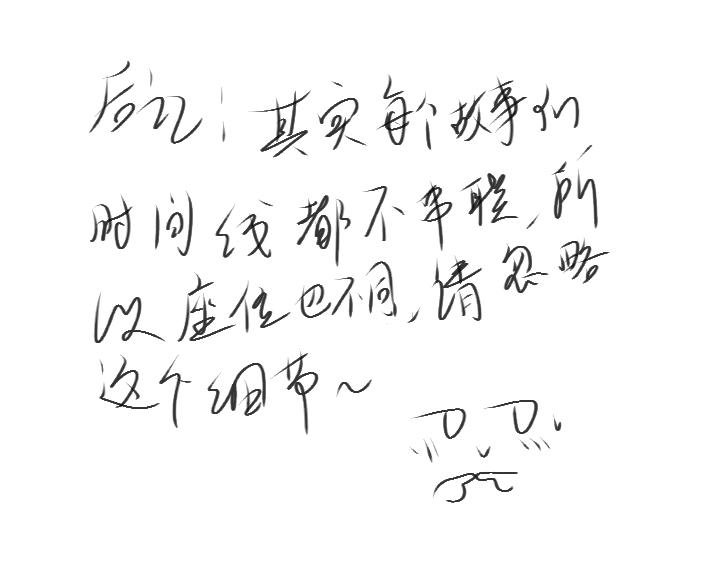 后记：其实每个故事们
时间线都不串联，所
以座位也不同，请忽略
这个细节～